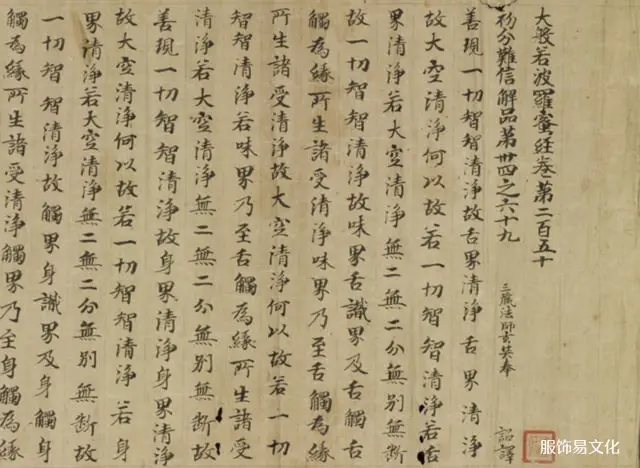 大般若波羅蜜經卷第二百五十
初分難信解品第卅四之六十九
三藏法師玄奘奉 詔譯
善現一切智智清淨故舌界清淨舌界清淨
故大空清淨何以故若一切智智清淨若舌
界清淨若大空清淨無二無二分無別無斷
故一切智智清淨故味界舌識界及舌觸舌
觸為緣所生諸受清淨味界乃至舌觸為緣
所生諸受清淨故大空清淨何以故若一切
智智清淨若味界乃至舌觸為緣所生諸受
清淨若大空清淨無二無二分無別無斷故
善現一切智智清淨故身界清淨身界清淨
故大空清淨何以故若一切智智清淨若身
界清淨若大空清淨無二無二分無別無斷故
一切智智清淨故觸界身識界及身觸身
觸為緣所生諸受清淨觸界乃至身觸為緣
服饰易文化